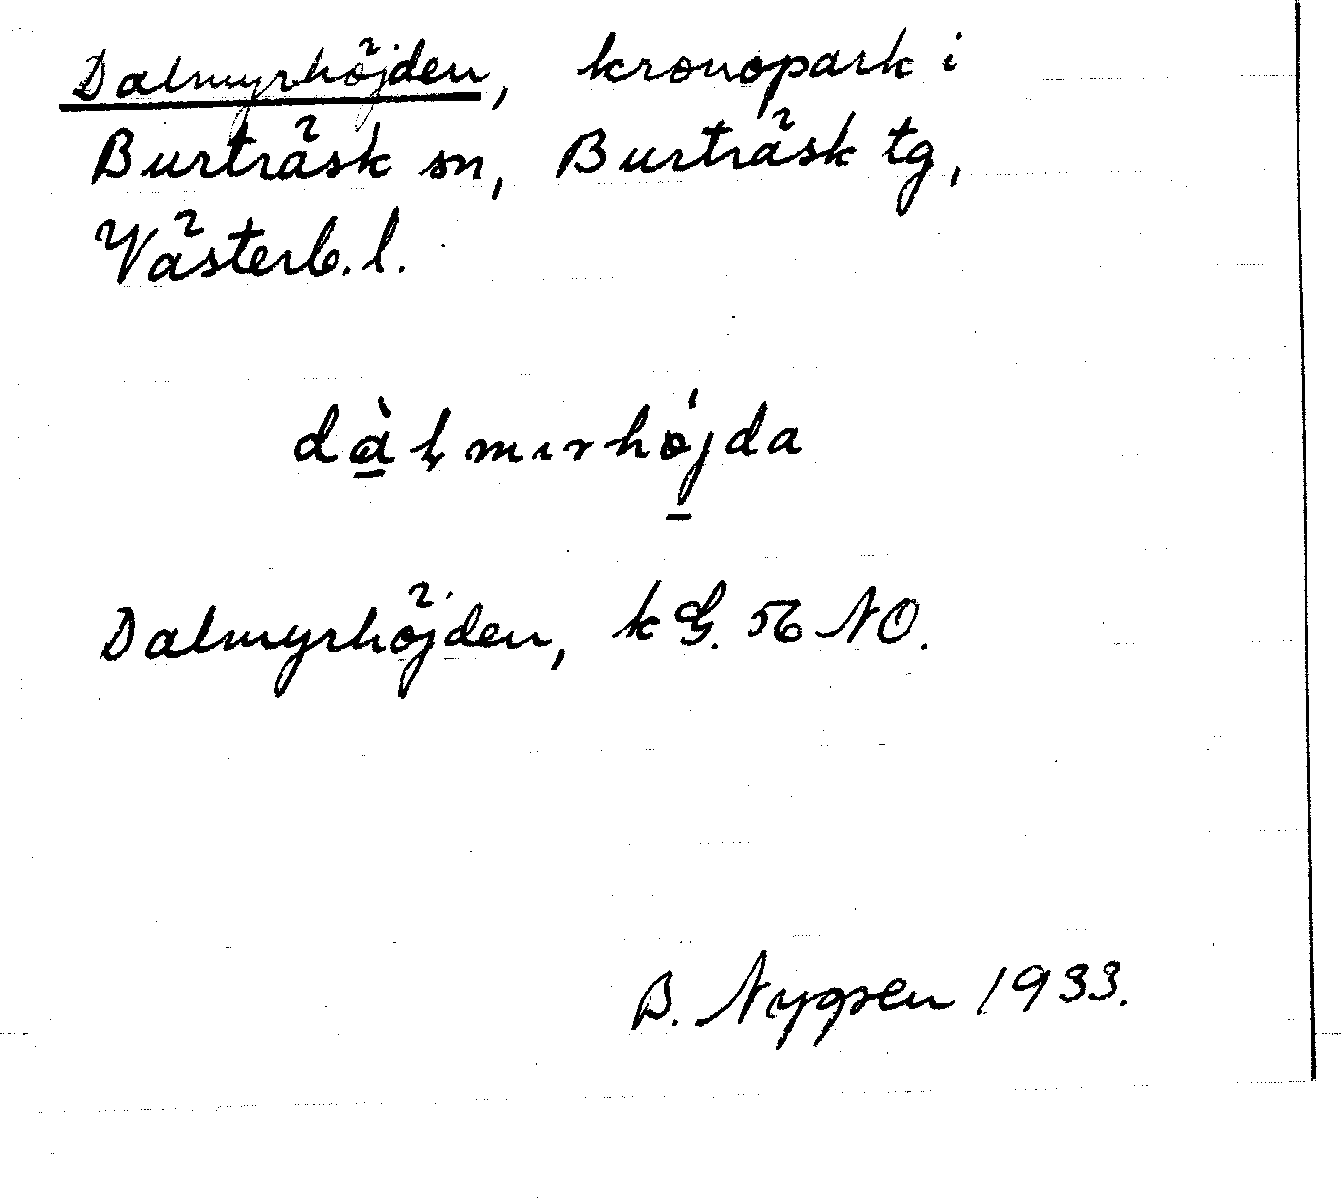 Dalmyrhöjden, kronopark i
Burträsk sn, Burträsk tg,
Västerb. l.
dàḷmırhö́jda
Dalmyrhöjden, k G. 56 NO.
B. Nygren 1933.